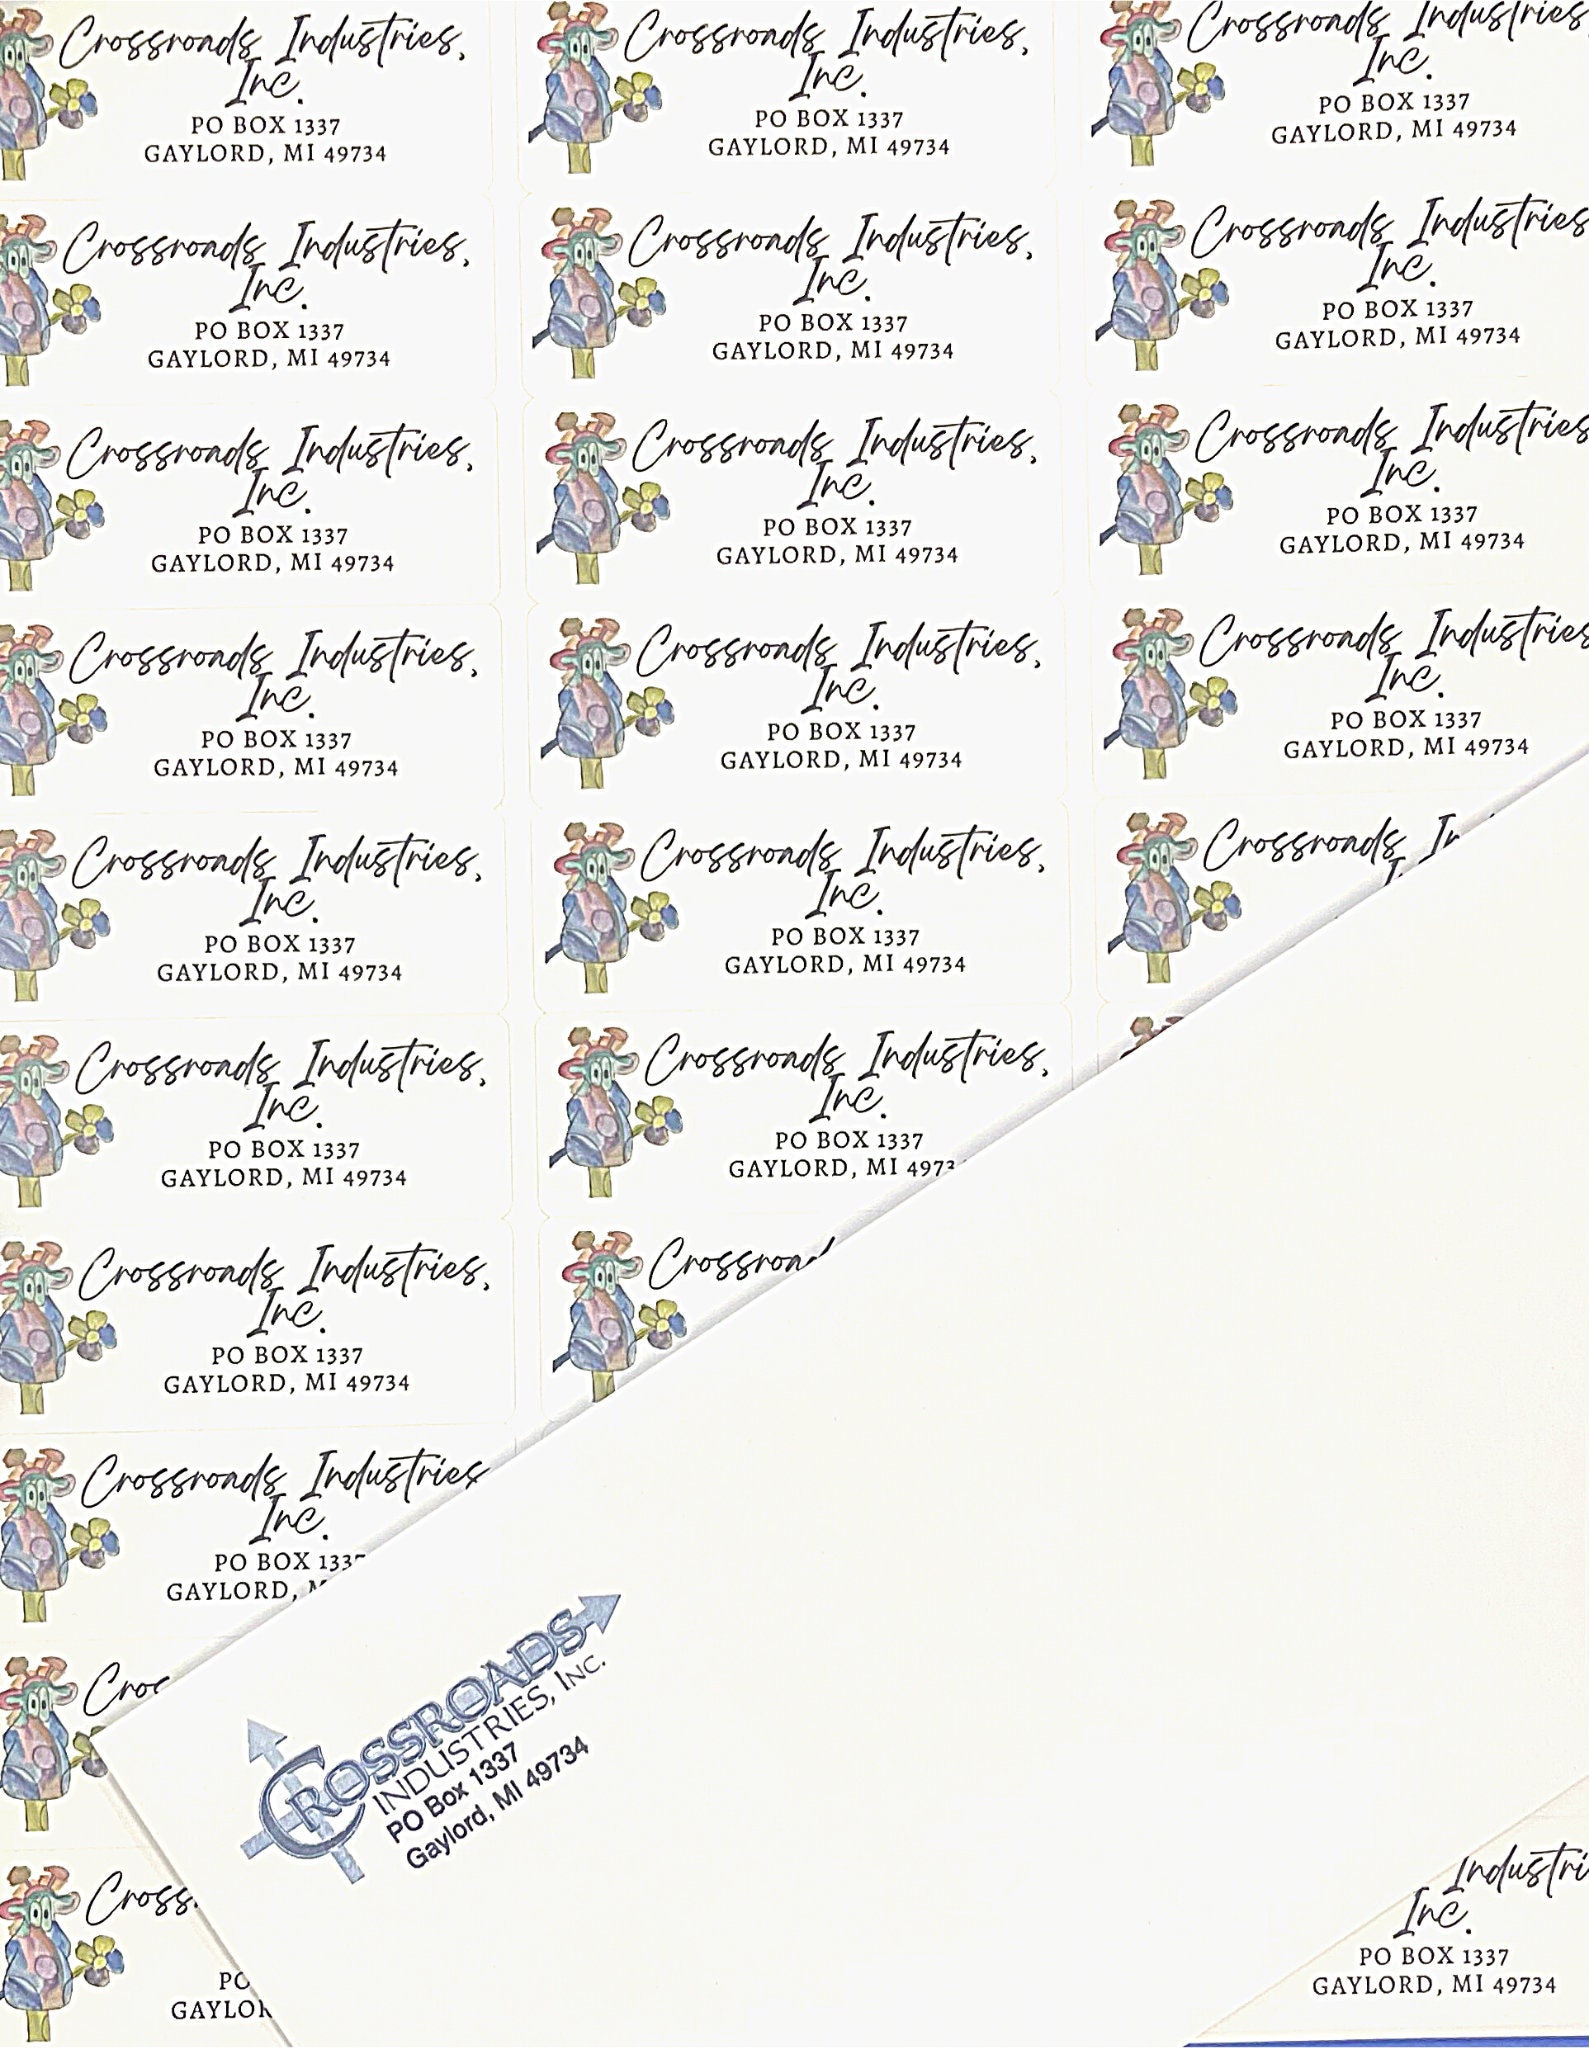 Crossroads Industries,
Inc.
PO BOX 1337
GAYLORD, MI 49734
Crossroads Industries,
Inc.
PO BOX 1337
GAYLORD, MI 49734
Crossroads Industries,
Inc.
PO BOX 1337
GAYLORD, MI 49734
Crossroads Industries,
Inc.
PO BOX 1337
GAYLORD, MI 49734
Crossroads Industries,
Inc.
PO BOX 1337
GAYLORD, MI 49734
Crossroads Industries
Inc.
PO BOX 1337
GAYLORD, MI 49734
Crossroads Industries,
Inc.
PO BOX 1337
GAYLORD, MI 49734
Crossroads Industries,
Inc.
PO BOX 1337
GAYLORD, MI 49734
Crossroads Industries
Inc.
PO BOX 1337
GAYLORD, MI 49734
Crossroads Industries,
Inc.
PO BOX 1337
GAYLORD, MI 49734
Crossroads Industries,
Inc.
PO BOX 1337
GAYLORD, MI 49734
Crossroads Industries
Inc.
PO BOX 1337
GAYLORD, MI 49734
Crossroads Industries,
Inc.
PO BOX 1337
GAYLORD, MI 49734
Crossroads Industries,
Inc.
PO BOX 1337
GAYLORD, MI 49734
Crossroads
Crossroads Industries,
Inc.
PO BOX 1337
GAYLORD, MI 49734
Crossroads Industries,
Inc.
PO BOX 1337
GAYLORD, MI 4973
Crossroads Industries,
Inc.
PO BOX 1337
GAYLORD, MI 49734
Crossroad
Crossroads Industries
Inc.
PO BOX 133
GAYLORD,
Cros
CROSSROADS
INDUSTRIES, INC.
PO Box 1337
Gaylord, MI 49734
Cross
PO
GAYLOR
Industri
Inc.
PO BOX 1337
GAYLORD, MI 49734